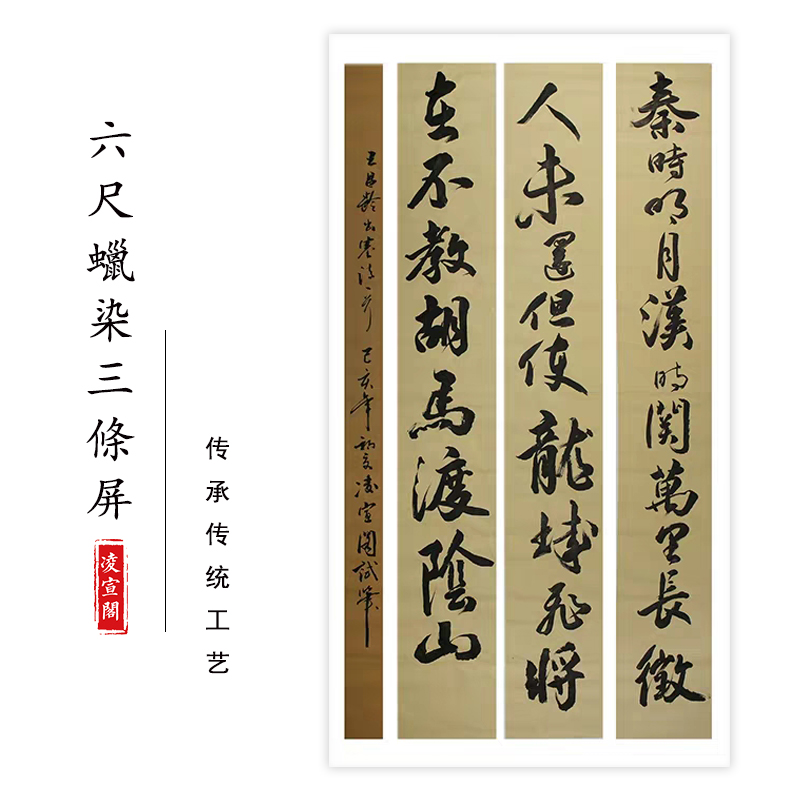 六尺蠟染三條屏
凌宣閣
传承传统工艺
秦時明月漢時關萬里長徵
人未還但使龍城飛將
在不教胡馬渡陰山
王昌齡出塞詩一首 己亥年初夏凌宣閣試筆